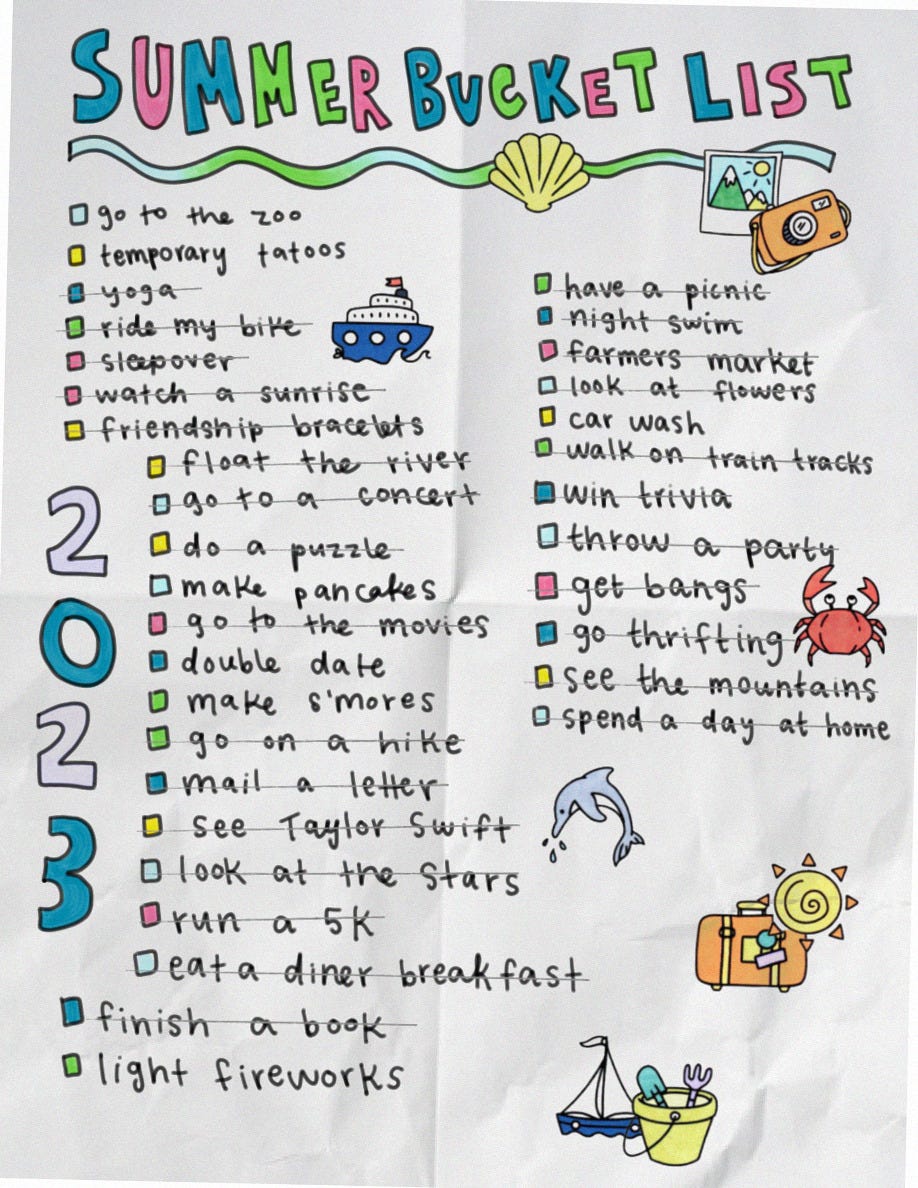 SUMMER BUCKET LIST
go to the zoo
temporary tatoos
yoga
ride my bike
sleepover
watch a sunrise
friendship bracelets
float the river
go to a concert
do a puzzle
make pancakes
go to the movies
double date
make s'mores
go on a hike
mail a letter
see Taylor Swift
look at the stars
run a 5K
eat a diner breakfast
finish a book
light fireworks
2023
have a picnic
night swim
farmers market
look at flowers
car wash
walk on train tracks
win trivia
throw a party
get bangs
go thrifting
see the mountains
spend a day at home